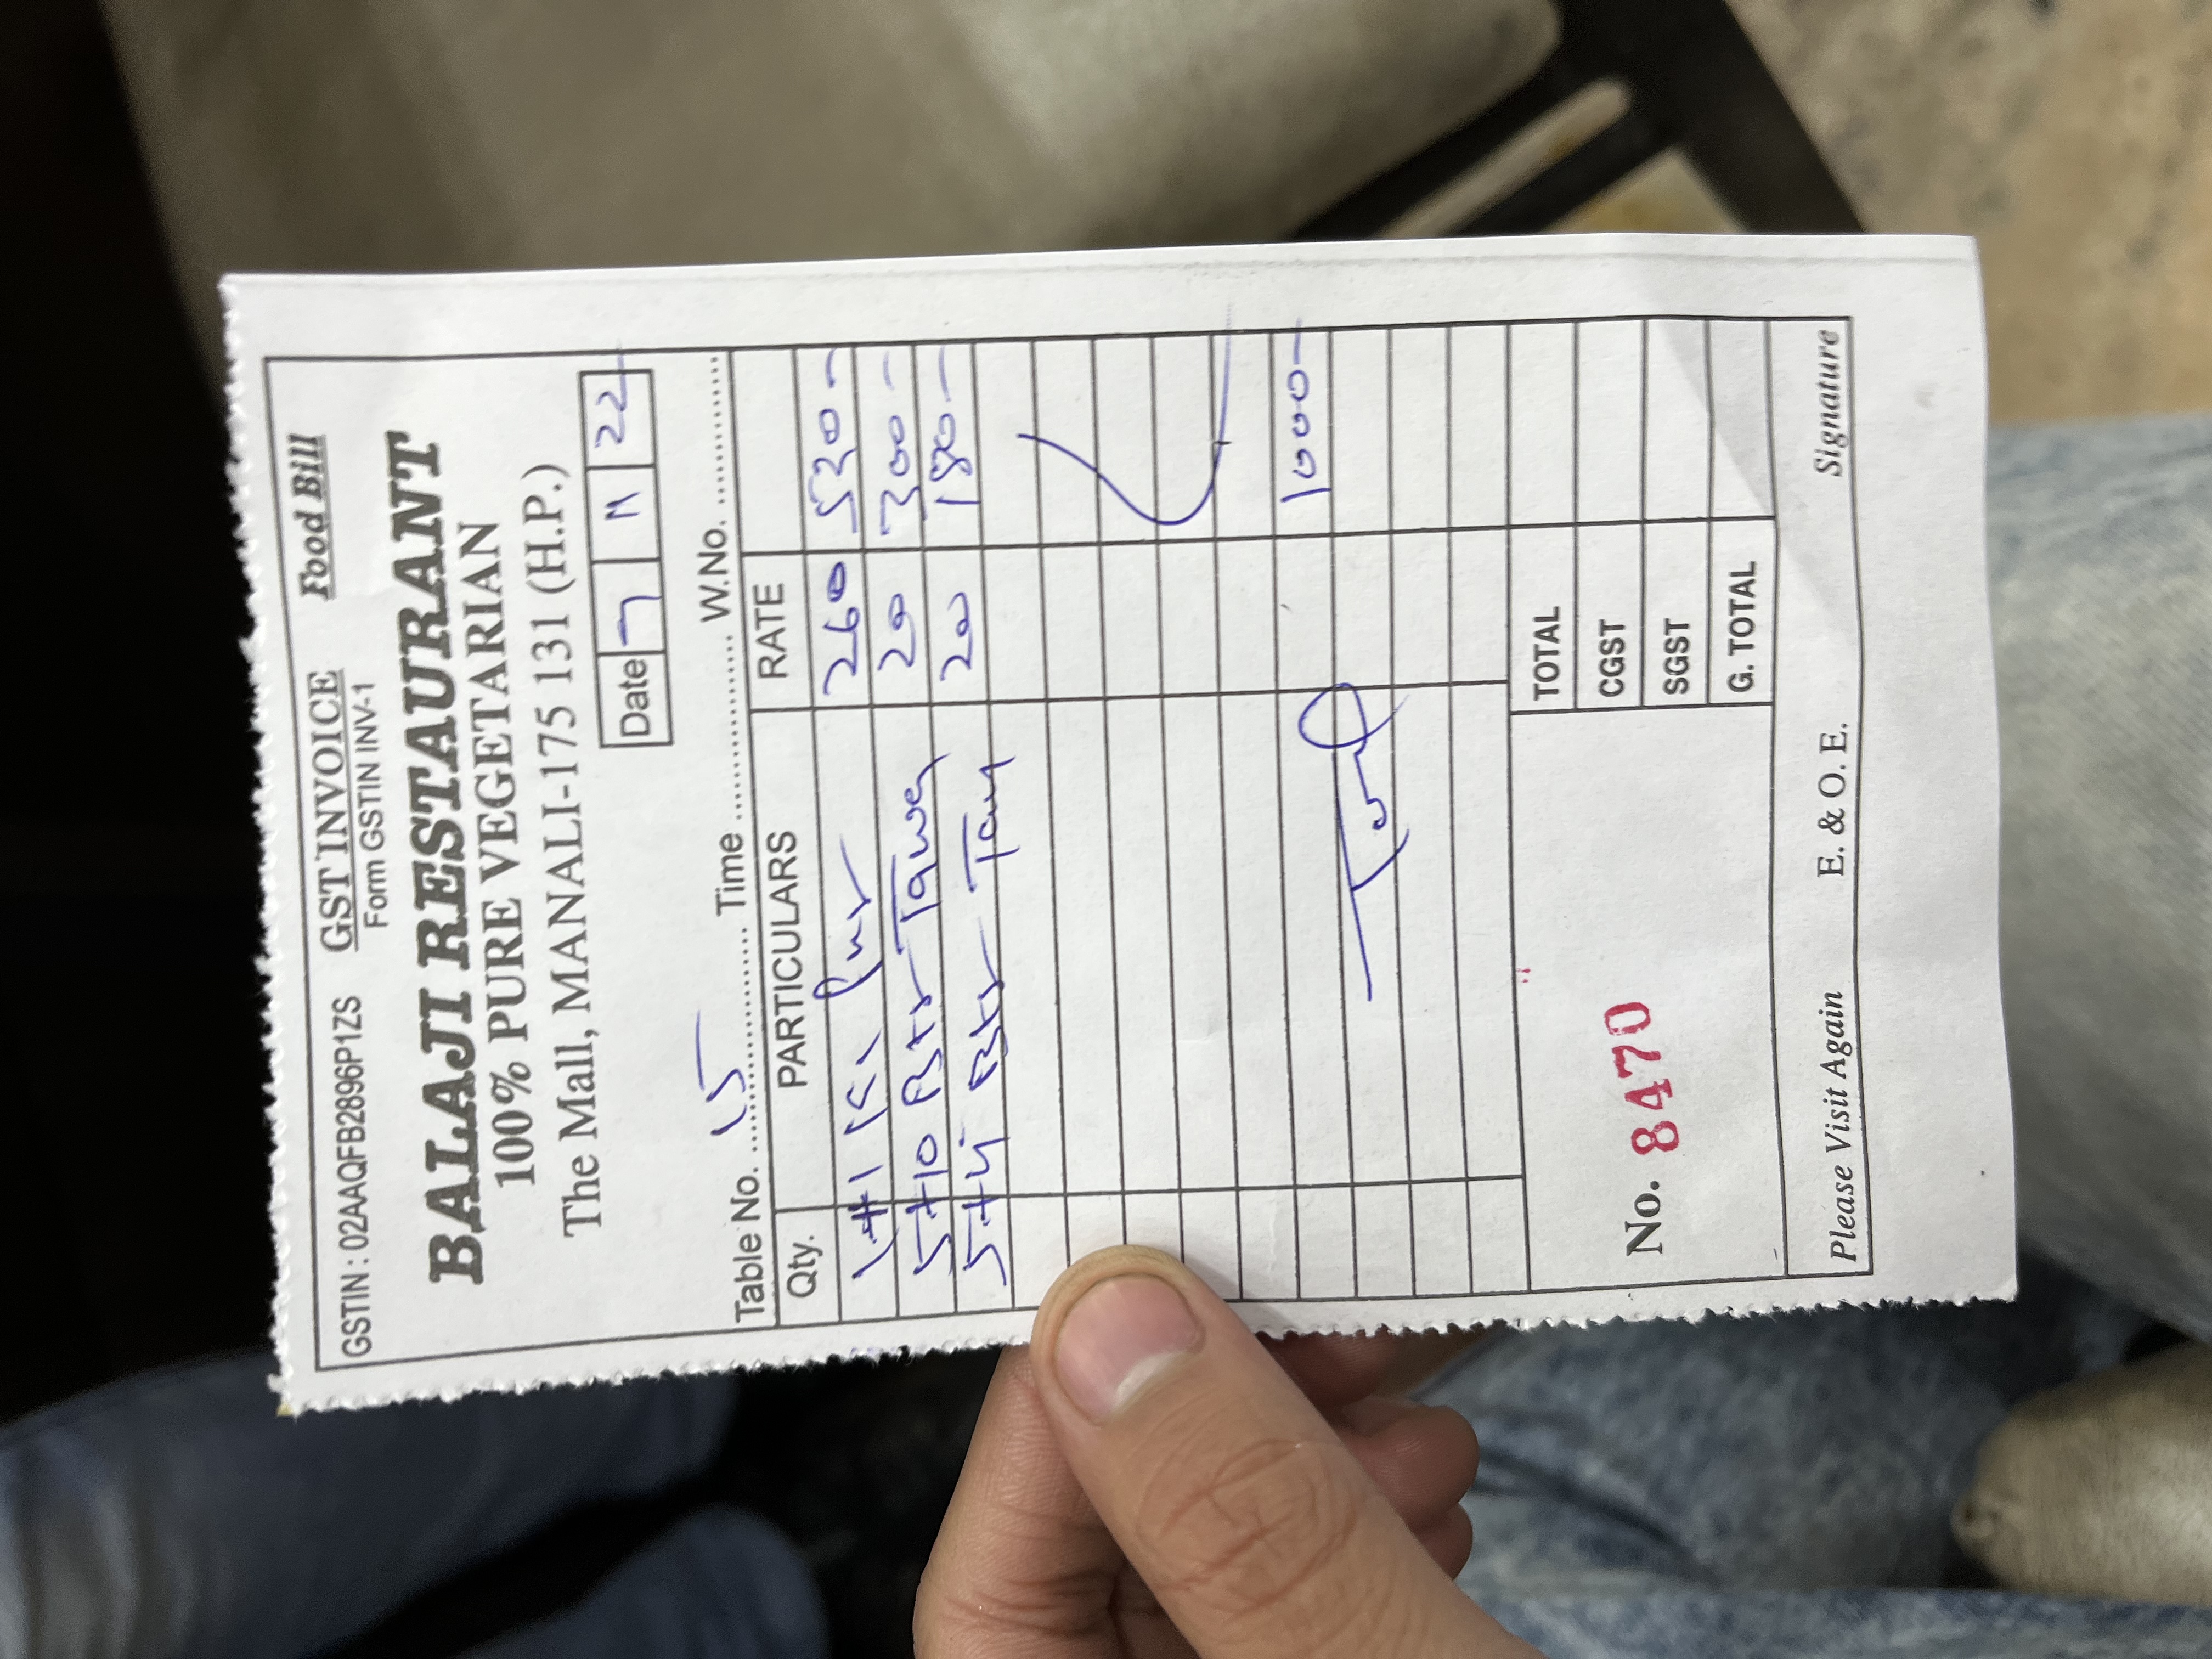 GSTIN : 02AAQFB2896P1ZS GST INVOICE Food Bill
Form GSTIN INV-1
BALAJI RESTAURANT
100% PURE VEGETARIAN
The Mall, MANALI-175 131 (H.P.)
Date 7 11 22
Table No. 15 Time W.No.
Qty. PARTICULARS RATE
1+1 260 520-
5+10 Btr Tawa 20 300-
5+4 Btr 20 180-
1000-
TOTAL
CGST
No. 8470
SGST
G. TOTAL
Please Visit Again E. & O. E. Signature